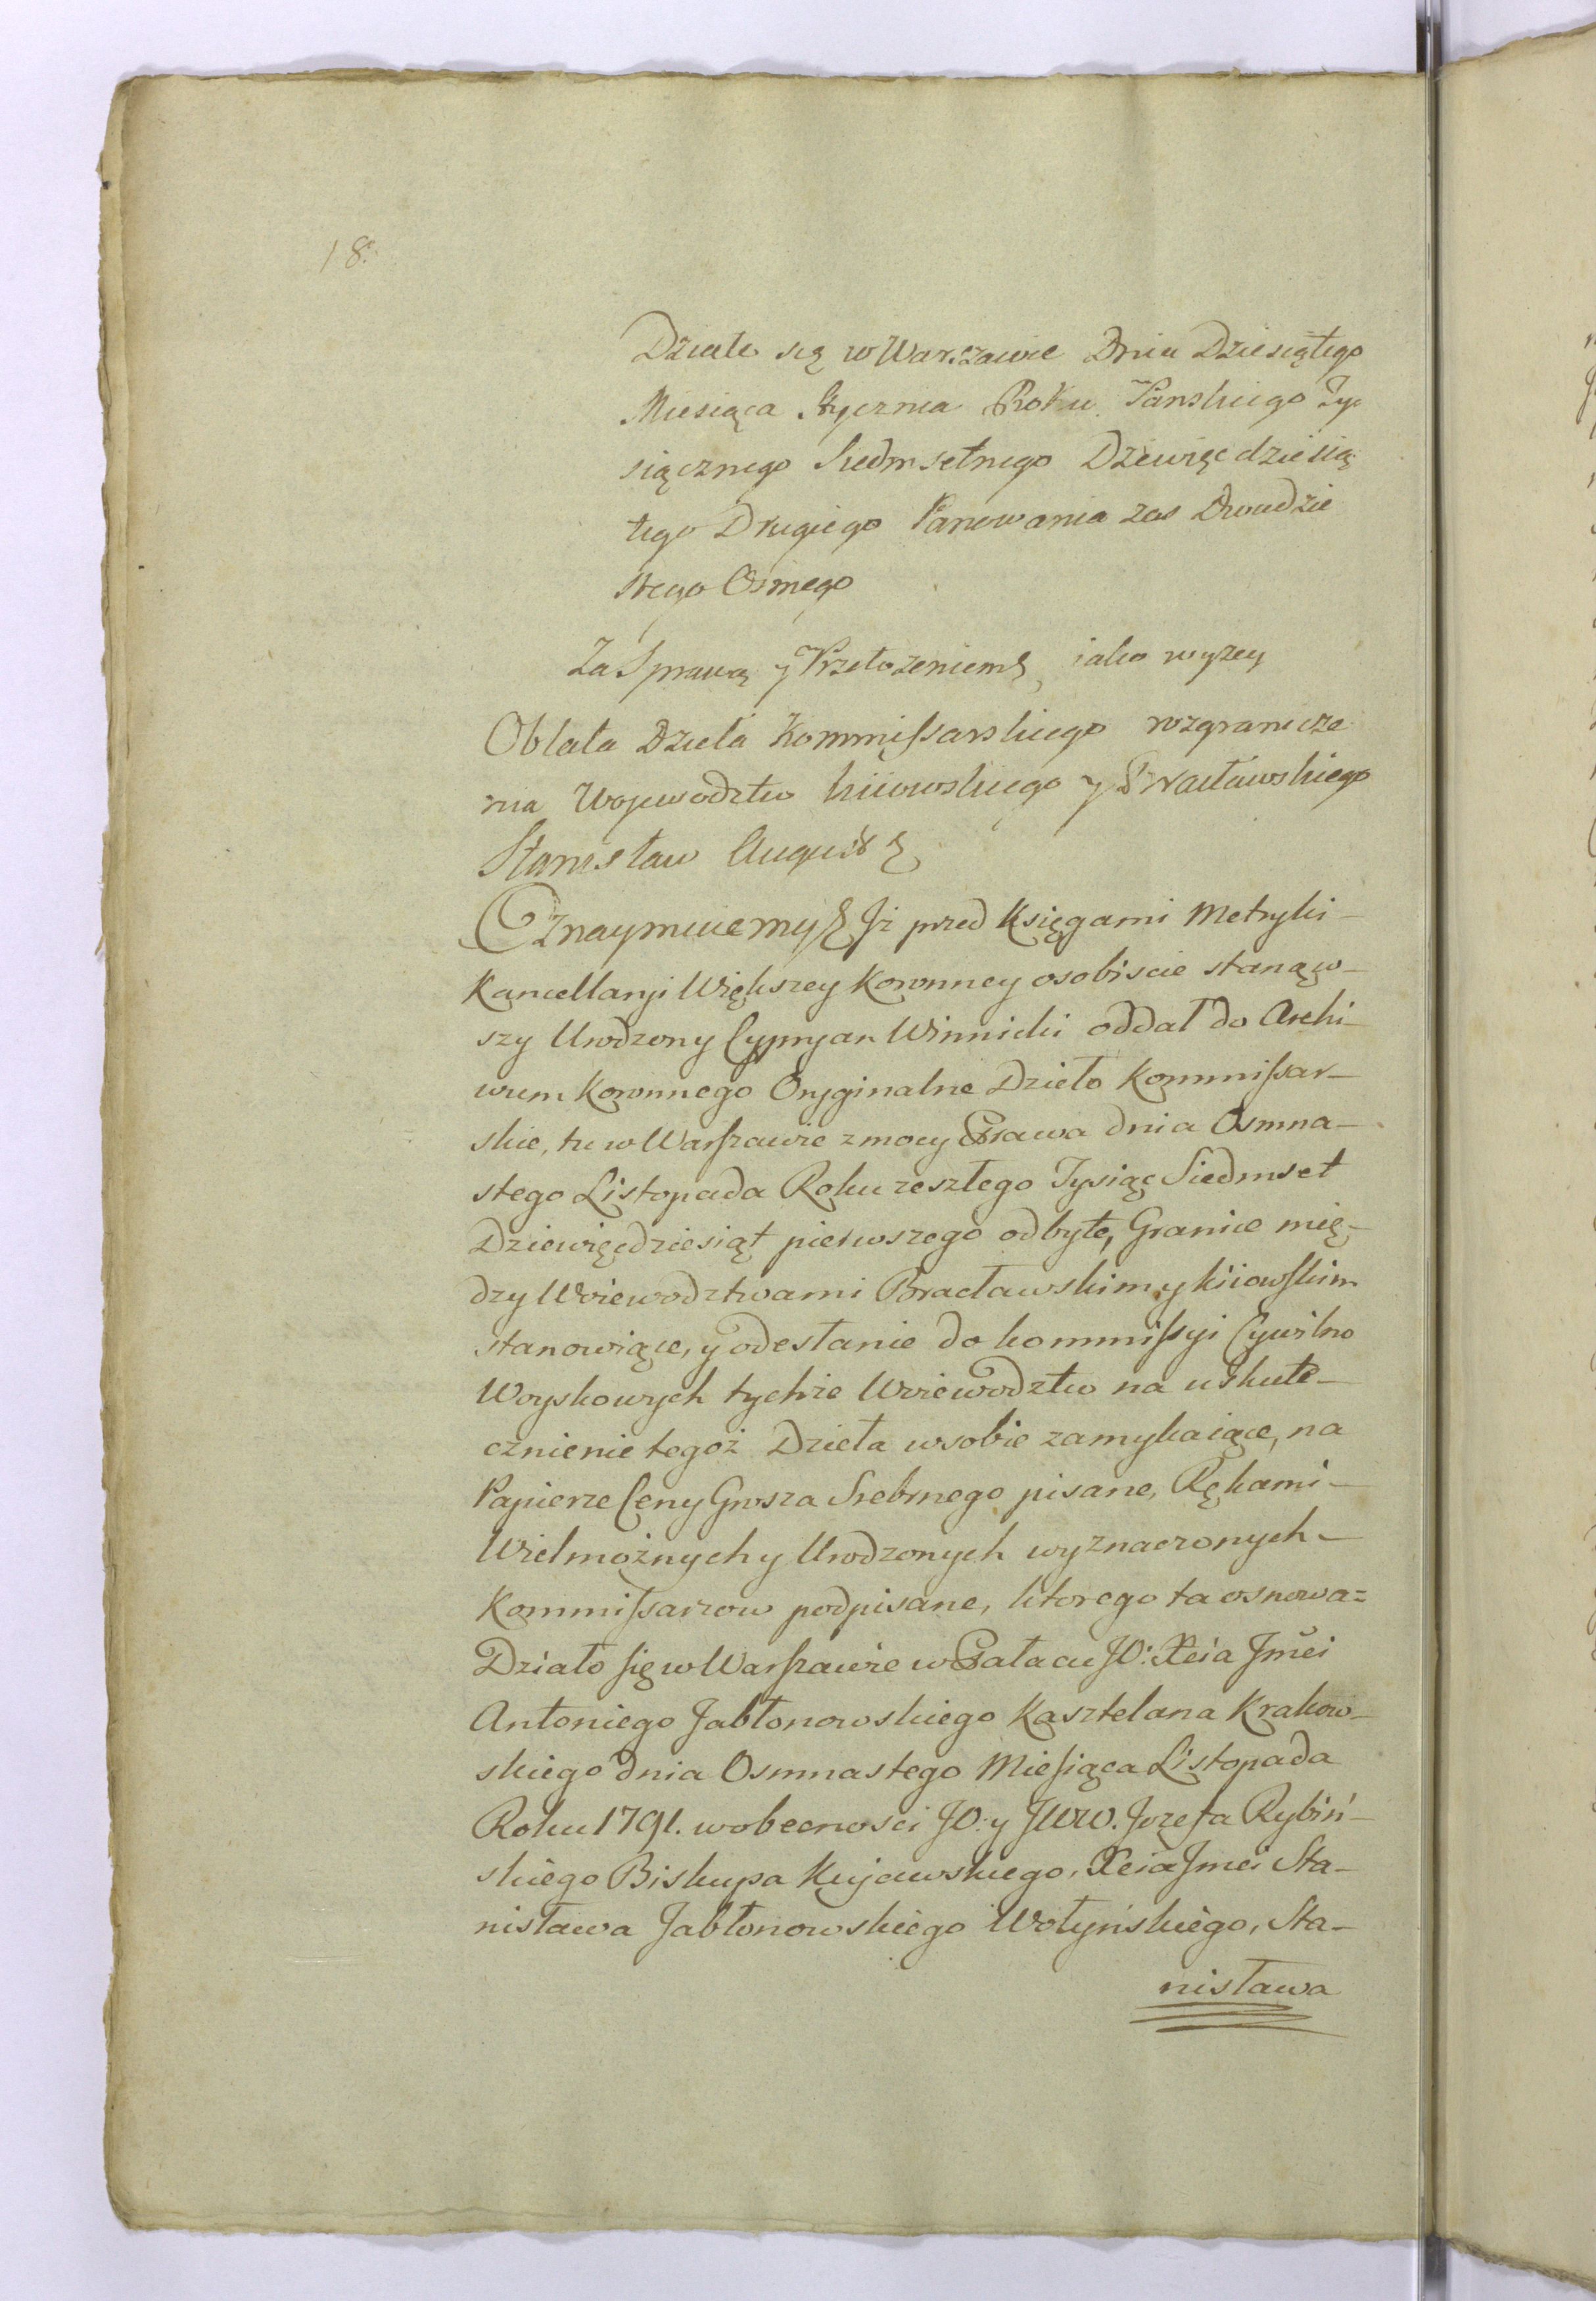 18.
Działo się w Warszawie Dnia Dziesiątego
Miesiąca Stycznia Roku Panskiego Ty
siącznego Siedmsetnego Dziewięcdziesią
tego Drugiego Panowania zas Dwudzie
stego Osmego
Za Sprawą y Przełożeniem & iako wyzey
Oblata Dzieła Kommissarskiego rozgranicze
nia Wojewodztw kiiowskiego y Bracławskiego
Stanisław August &
Oznaymuiemy & Iż przed Księgami Metryki-
Kancellaryi Większey Koronney osobiscie stanąw-
szy Urodzony Cypryan Winnicki oddał do Archi-
wum Koronnego Oryginalne Dzieło Kommissar-
skie, tu w Warszawie z mocy Prawa dnia Osmna-
stego Listopada Roku zeszłego Tysiąc Siedmset
Dziewięćdziesiąt pierwszego odbyte, Granice mię-
dzy Woiewodztwami Bracławskim y kiiowskim
stanowiące, y odesłanie do kommissyi Cywilno
Woyskowych tychże Woiewodztw na uskute-
cznienie tegoż Dzieła w sobie zamykaiące, na
Papierze Ceny Grosza Srebrnego pisane, Rękami-
Wielmożnych y Urodzonych wyznaczonych-
Kommissarzow podpisane, ktorego ta osnowa=
Działo się w Warszawie w Pałacu JO: Xcia Jmći
Antoniego Jabłonowskiego Kasztelana Krakow-
skiego dnia Osmnastego Miesiąca Listopada
Roku 1791. w obecnosci JO: y JWW. Jozefa Rybiń-
skiego Biskupa Kujawskiego, Xcia Jmci Sta-
nisława Jabłonowskiego Wołyńskiego, Sta-
nisława